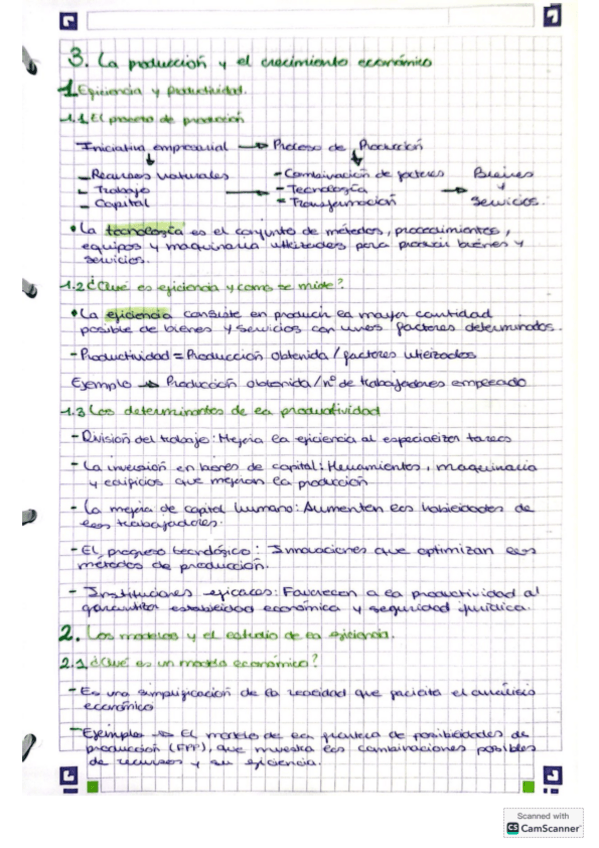 3. La producción y el crecimiento económico
1. Eficiencia y productividad.
1.1 El proceso de producción
Iniciativa empresarial → Proceso de Producción
- Recursos naturales - Combinación de factores Bienes
- Trabajo → - Tecnología → y
- Capital - Transformación Servicios.
• La tecnología es el conjunto de métodos, procedimientos,
equipos y maquinaria utilizados para producir bienes y
servicios.
1.2 ¿Qué es eficiencia y como se mide?
• La eficiencia consiste en producir la mayor cantidad
posible de bienes y servicios con unos factores determinados.
- Productividad = Producción obtenida / factores utilizados
Ejemplo → Producción obtenida / nº de trabajadores empleado
1.3 Los determinantes de la productividad
- División del trabajo: Mejora la eficiencia al especializar tareas
- La inversión en bienes de capital: Herramientas, maquinaria
y edificios que mejoran la producción
- La mejora de capital humano: Aumentan las habilidades de
los trabajadores.
- El progreso tecnológico: Innovaciones que optimizan los
métodos de producción.
- Instituciones eficaces: Favorecen a la productividad al
garantizar estabilidad económica y seguridad jurídica.
2. Los modelos y el estudio de la eficiencia.
2.1 ¿Qué es un modelo económico?
- Es una simplificación de la realidad que facilita el análisis
económico
- Ejemplo → El modelo de la frontera de posibilidades de
producción (FPP), que muestra las combinaciones posibles
de recursos y su eficiencia.
Scanned with
CS CamScanner